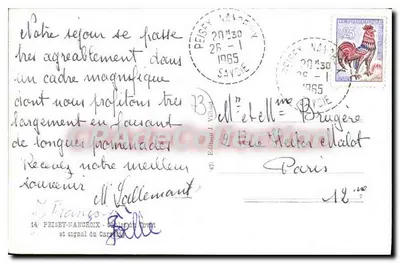 Notre séjour se passe
très agréablement dans
un cadre magnifique
dont nous profitons très
largement en faisant
de longues promenades
Recevez notre meilleur
souvenir
M Lallemant
PEISEY NANCROIX
20H30
26-1
1965
SAVOIE
PEISEY NANCROIX
20H30
26-1
1965
SAVOIE
0,25
73
Mr et Mme Brugère
Rue Hector Malot
Paris
12ème
14 PEISEY-NANCROIX
et signal du